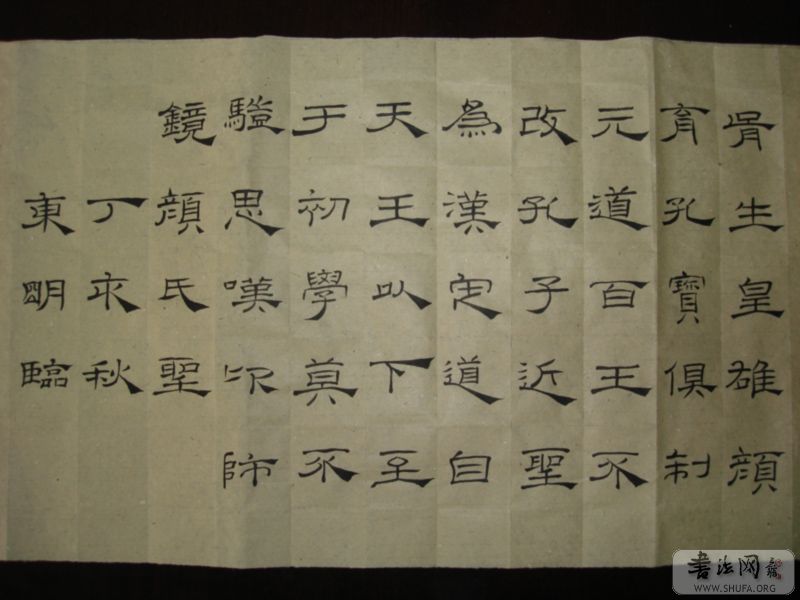 胥生皇雄顏
育孔寶俱制
元道百王不
改孔子近聖
爲漢定道自
天王以下至
于初學莫不
驥思嘆卬師
鏡顏氏聖
丁亥秋
東明臨
书法网
WWW.SHUFA.ORG